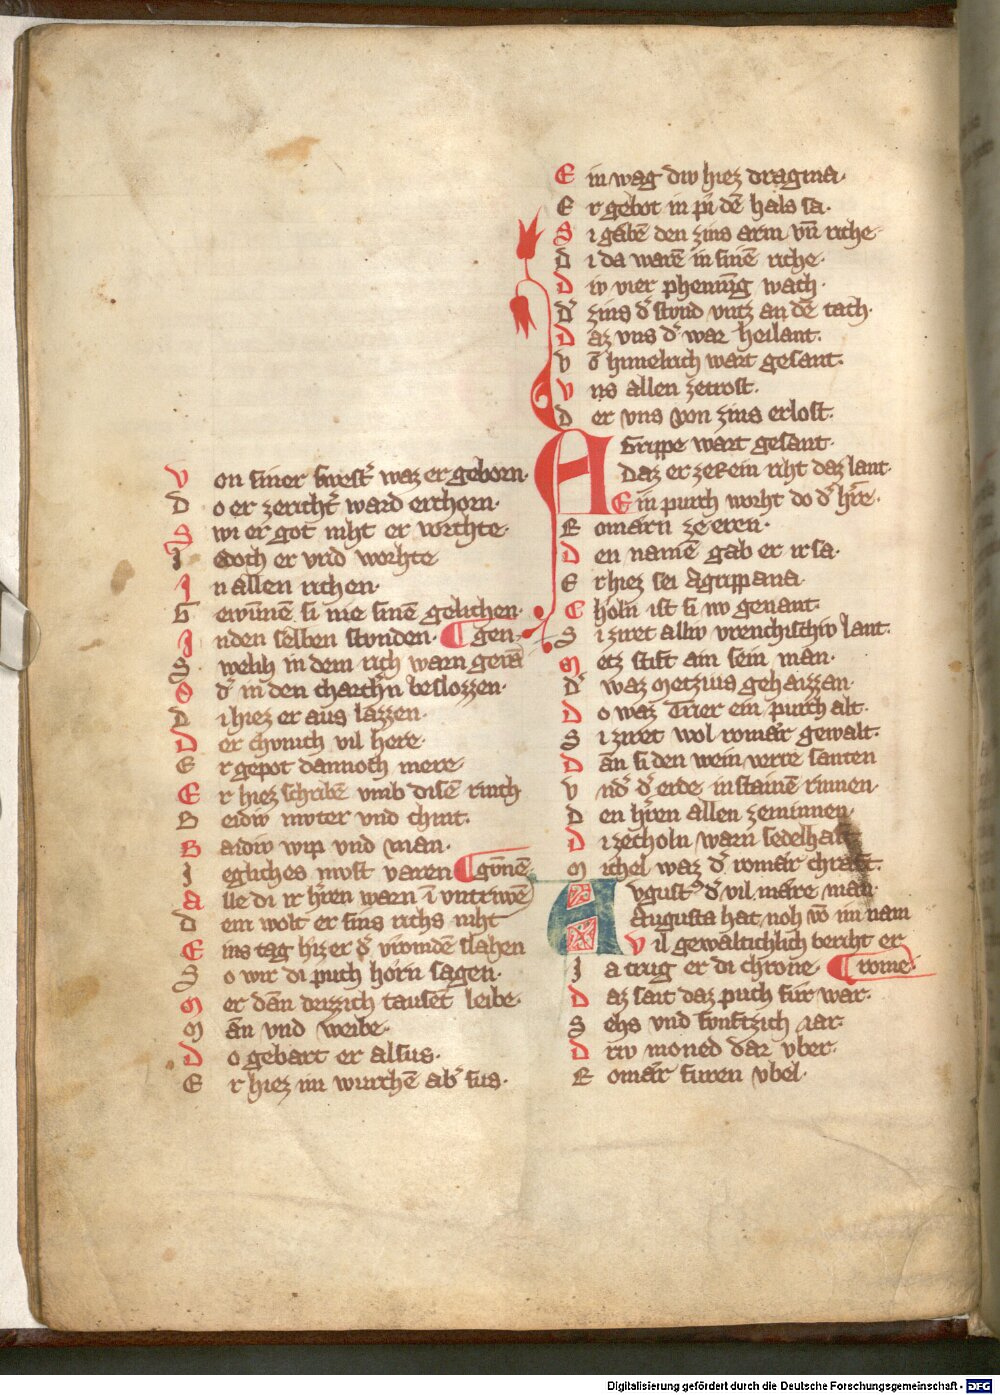 Von siner swest͛ waz er geborn·
Do er zericht͛ ward erchorn·
Swi er got niht er vorchte·
Idoch er vrid worhte
In allen richen·
Gewūnnē si nie sinē gelichen·
Inden selben stvnden· ¶gen·
Swelh in dem rich warn gevā
Od͛ in den charch͛n beslozzen·
Di hiez er aus lazzen·
Der chvnich vil here·
Er gepot dannoch mere·
Er hiez schribē vmb disē rinch
Beidiv mvter vnd chint·
Baidiv wip vnd man·
Iegliches mvst varen ¶gv̄nnē
Alle di ir h͛ren warn ī vntriwē
Dem wolt er sins richs niht
Eins tag hiz er d͛ vromdē slahen
So wir di puch horn sagen·
Mer dān drizzich tausēt leibe·
Man vnd weibe·
Do gebart er alsus·
Er hiez im wurchē ab͛ sus·
Ein wag div hiez dragma·
Er gebot in pi dē hals sa·
Si gabē den zins arm vn̄ riche·
Di da warē in sinē riche·
Div vier phenīng wach·
D͛ zins d͛ stvnd vntz an dē tach·
Daz vns d͛ war heilant·
Vō himelrich wart gesant·
Vns allen zetrost·
Der vns von zins erlost·
Agrippe wart gesant·
Daz er zeRein riht daz lant·
Ein purch worht do d͛ h͛re·
Romārn ze eren·
Den namē gab er ir sa·
Er hiez sei Agrippana
Choln ist si nv genant·
Si ziret alliv vrenchischiv lant·
Metz stift ain sein man·
D͛ waz Metzius gehaizzan·
Do waz Trier ein purch alt·
Si ziret wol romār gewalt·
Dan si den wein verre santen
Vnd͛ d͛ erde in stainē rinnen·
Den h͛ren allen zeminnen·
Di zecholn warn sedelhaft
Michel waz d͛ romār chraft·
Avgust͛ d͛ vil māre man·
Augusta hat noh vō im nam
Vil gewaltichlich bericht er
Ia trug er di chrone· ¶rome·
Daz sait daz puch fur war·
Sehs vnd fvnftzich iar·
Driv moned dar vber·
Romār furen vbel·
Digitalisierung gefördert durch die Deutsche Forschungsgemeinschaft - DFG